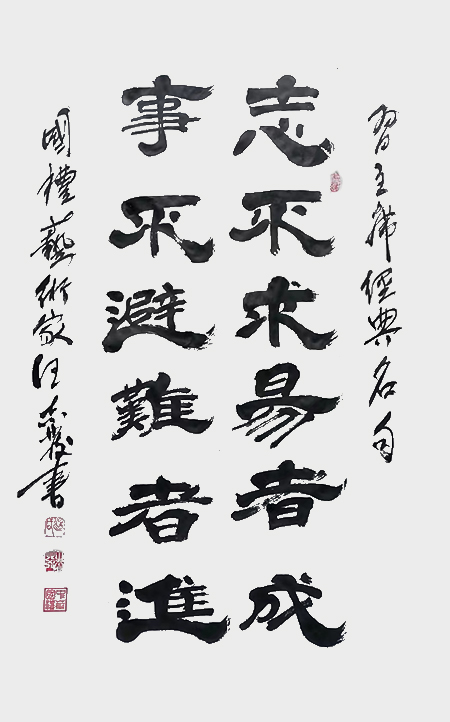 習主席經典名句
志不求易者成
事不避難者進
國禮藝術家汪書